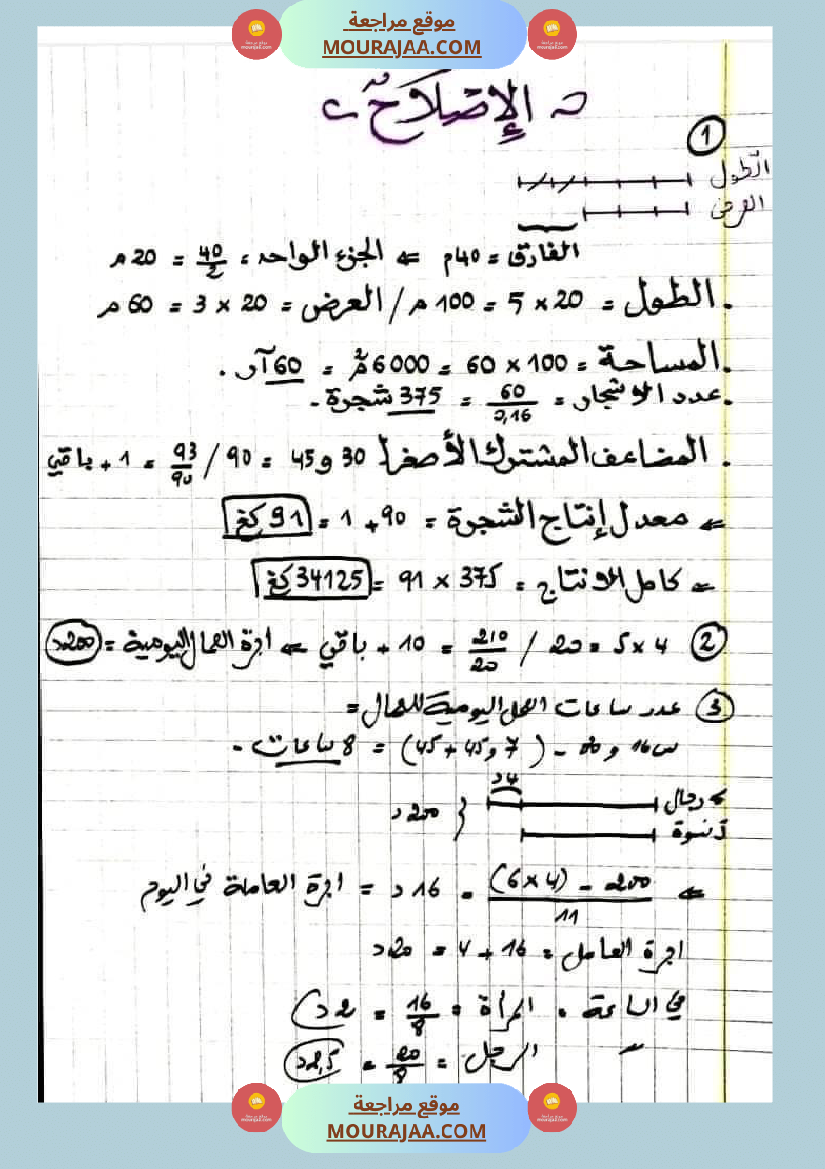 موقع مراجعة
MOURAJAA.COM
الإصلاح
1
الطول
العرض
الفارق = 40م ⇐ الجزء الواحد = 40/2 = 20 م
. الطول = 20 × 5 = 100 م / العرض = 20 × 3 = 60 م
. المساحة = 100 × 60 = 6000 م² = 60 آر .
. عدد الأشجار = 60/0,16 = 375 شجرة .
. المضاعف المشترك الأصغر لـ 30 و 45 = 90 / 93/90 = 1 + باقي
⇐ معدل إنتاج الشجرة = 90 + 1 = 91 كغ
⇐ كامل الانتاج = 375 × 91 = 34125 كغ
2 4 × 5 = 20 / 210/20 = 10 + باقي ⇐ اجرة العمال اليومية = 200د
3 عدد ساعات العمل اليومية للعمال =
( 7 و 45 + 45 ) = 8 ساعات .
4د
رجال
نسوة
200 د
⇐ 200 - (4 × 6) / 11 = 16 د = اجرة العاملة في اليوم
اجرة العامل = 16 + 4 = 20 د
في الساعة . المرأة = 16/8 = 2 د
الرجل = 20/8 = 2,5 د
موقع مراجعة
MOURAJAA.COM